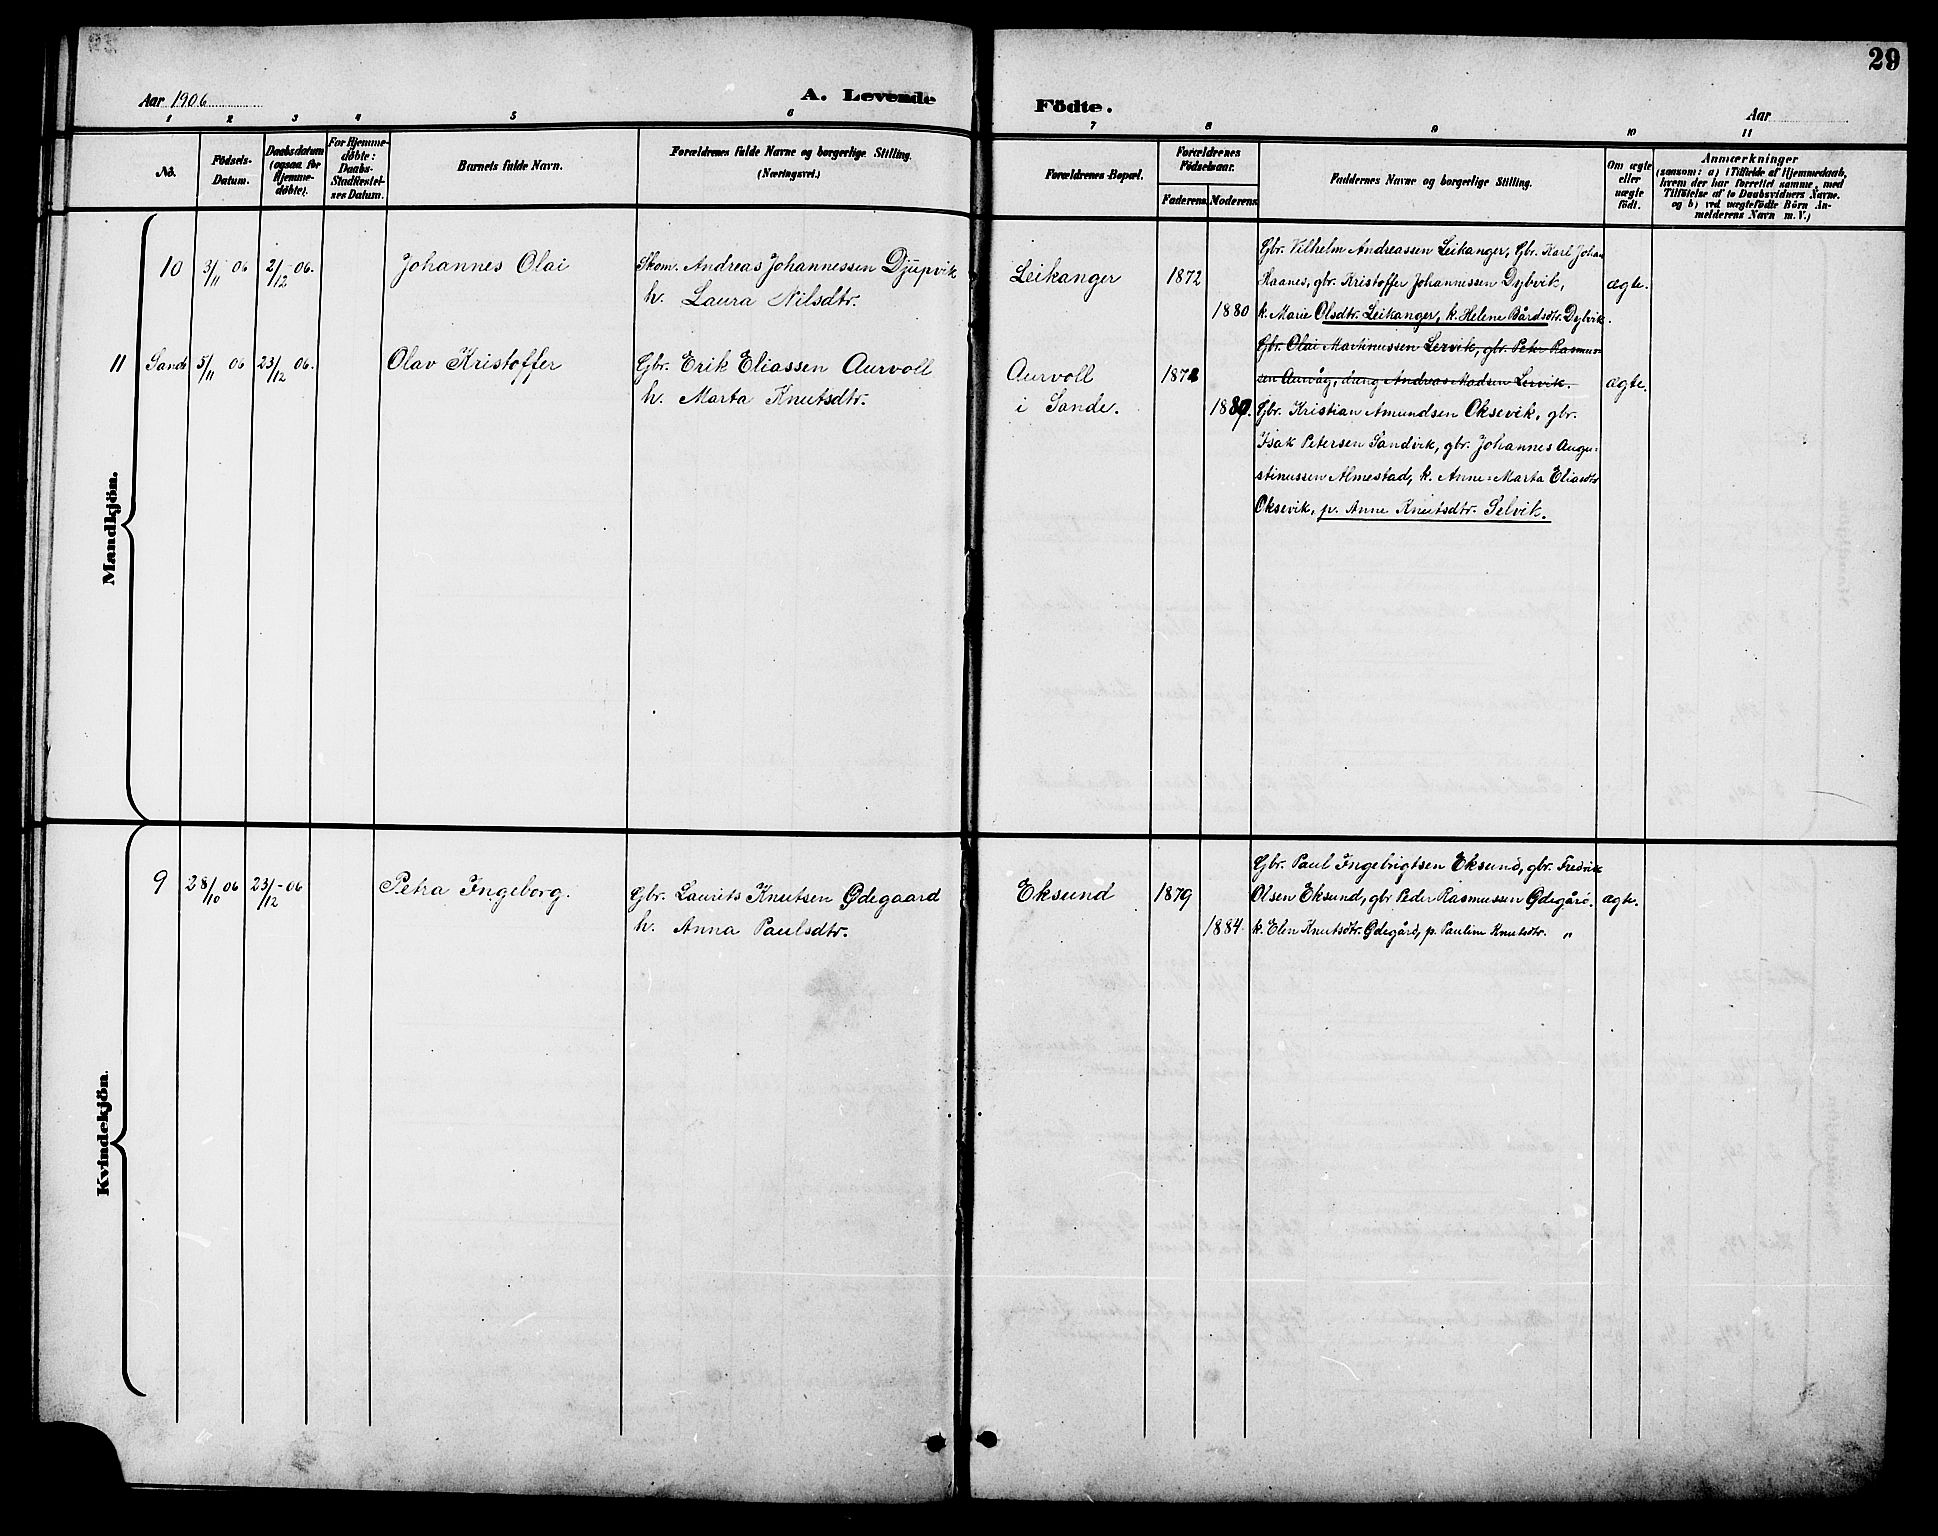 29
Aar 1906
A. Levende Födte.
Aar
1 2 3 4 5 6 7 8 9 10 11
No.
Födsels-Datum.
Daabsdatum (ogsaa for Hjemmedöbte).
For Hjemmedöbte: Daabs-Stadfestelses Datum.
Barnets fulde Navn.
Forældrenes fulde Navne og borgerlige Stilling.
(Næringsvei.)
Forældrenes Bopæl.
Forældrenes Födselsaar.
Faderens. Moderens.
Faddernes Navne og borgerlige Stilling.
Om ægte eller uægte födt.
Anmærkninger
(saasom: a) i Tilfælde af Hjemmedaab,
hvem der har forrettet samme, med
Tilföielse af to Daabsvidners Navne.
og b) ved uægtefödte Börn An-
melderens Navn m. V.)
Mandkjön.
10 3/11 06 2/12 06. Johannes Olai
Skom. Andreas Johannessen Djupvik
h. Laura Nilsdtr.
Leikanger 1872
1880
Gbr. Vilhelm Andreassen Leikanger, Gbr. Karl Johan
Haanes, gbr. Kristoffer Johannessen Dybvik,
k. Marie Olsdtr. Leikanger, k. Helene Bårdsdtr. Dybvik.
ægte.
11 Sande 5/11 06 23/12 06. Olav Kristoffer
Gbr. Erik Eliassen Aurvoll
h. Marta Knutsdtr.
Aurvoll
i Sande.
Gbr. Olai Martinussen Lervik, gbr. Peter Rasmus-
sen Aurvåg, dreng Andreas Madsen Lervik.
Gbr. Kristian Amundsen Oksevik, gbr.
Isak Petersen Sandvik, gbr. Johannes Augu-
stinussen Almestad, k. Anne-Marta Eliasdtr
Oksevik, p. Anne Knutsdtr. Selvik.
ægte.
Kvindekjön.
9 28/10 06 23/12 - 06 Petra Ingeborg.
Gbr. Laurits Knutsen Ødegaard
h. Anna Paulsdtr.
Eksund 1879
1884.
Gbr. Paul Ingebrigtsen Eksund, gbr. Fredrik
Olsen Eksund, gbr Peder Rasmussen Ødegård.
k. Elen Knutsdtr. Ødegård, p. Pauline Knutsdtr. "
ægte.